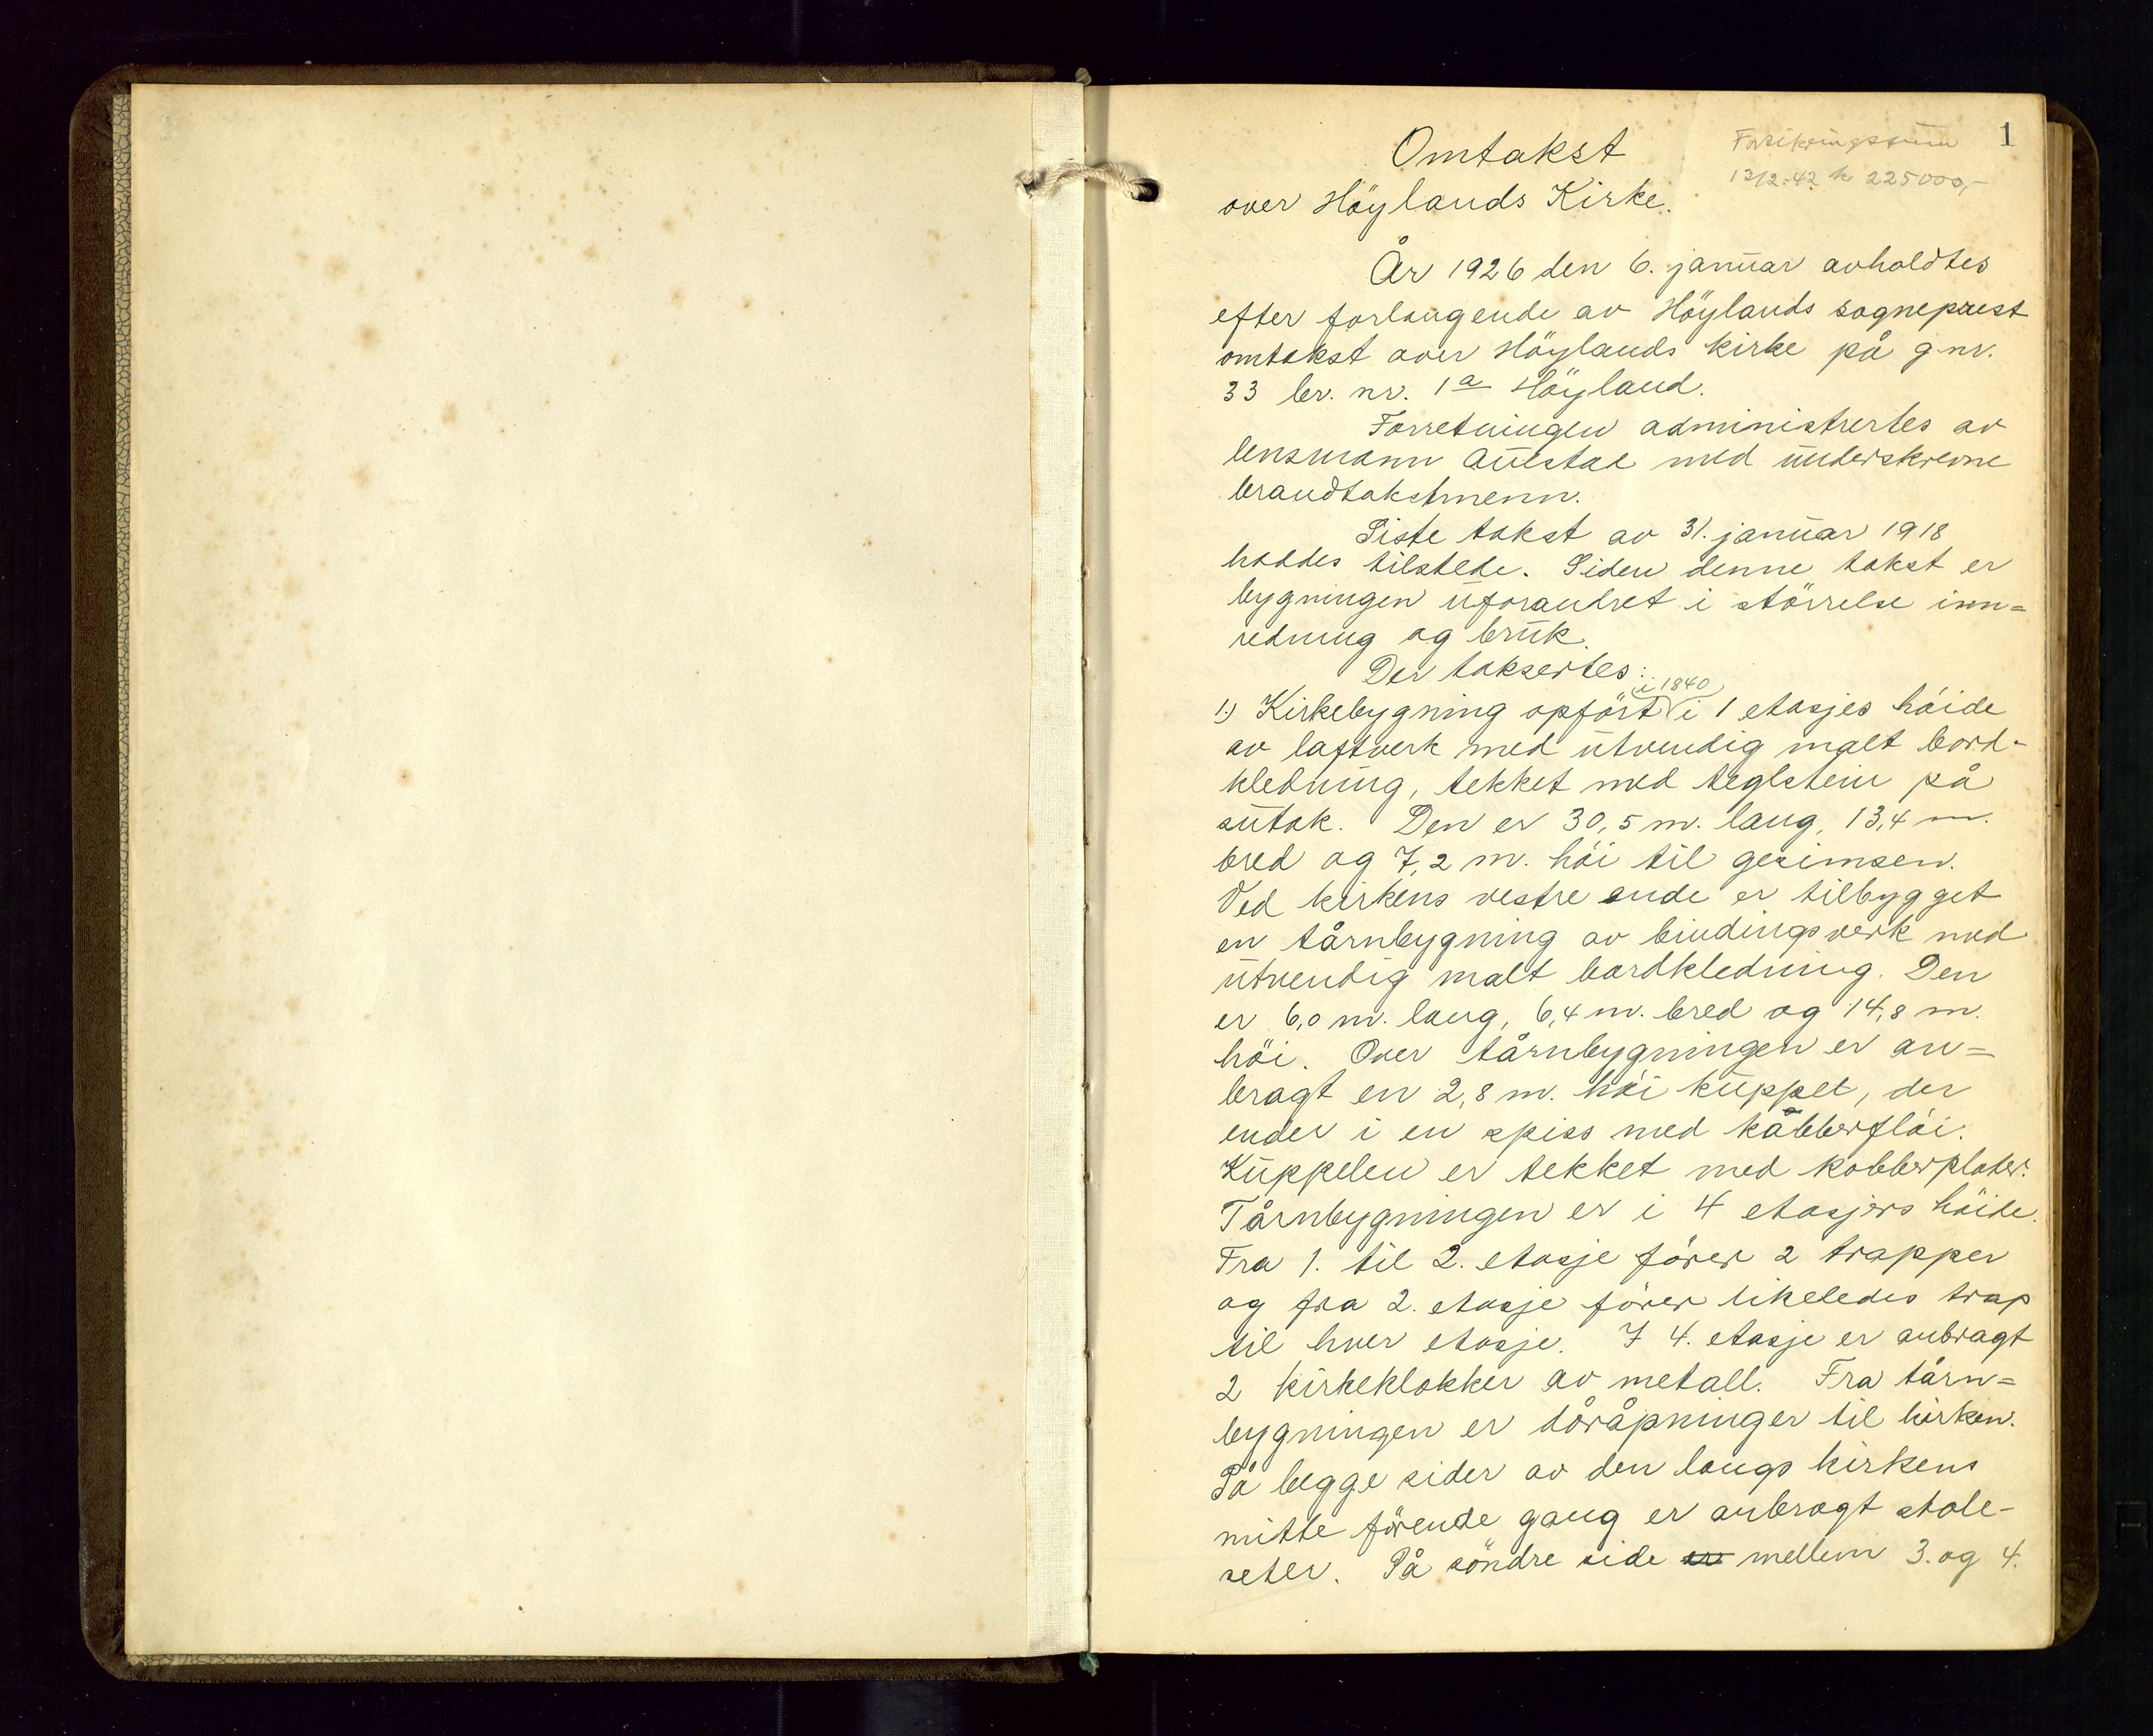 1
Forsikringssum
12/2.42 kr 225000,-
Omtakst
over Höylands Kirke.
År 1926 den 6. januar avholdtes
efter forlangende av Höylands sogneprest
omtakst over Höylands kirke på g.nr.
33 br. nr. 1a Höyland.
Forretningen administrertes av
lensmann Aulstad med underskrevne
brandtakstmenn.
Siste takst av 31. januar 1918
haddes tilstede. Siden denne takst er
bygningen uforandret i störrelse inn=
redning og bruk.
Der taksertes:
1.) Kirkebygning opfört i 1840 i 1 etasjes höide
av laftverk med utvendig malt bord-
kledning, tekket med teglstein på
sutak. Den er 30,5 m. lang, 13,4 m.
bred og 7,2 m. höi til gesimsen.
Ved kirkens vestre ende er tilbygget
en tårnbygning av bindingsverk med
utvendig malt bordkledning. Den
er 6,0 m. lang, 6,4 m. bred og 14,8 m.
höi. Over tårnbygningen er an=
bragt en 2,8 m. höi kuppel, der
ender i en spiss med kobberflöi.
Kuppelen er tekket med kobberplater.
Tårnbygningen er i 4 etasjers höide.
Fra 1. til 2. etasje förer 2 trapper
og fra 2. etasje förer likeledes trap
til hver etasje. I 4. etasje er anbragt
2 kirkeklokker av metall. Fra tårn=
bygningen er döråpninger til kirken.
På begge sider av den langs kirkens
mitte förende gang er anbragt stole-
seter. På söndre side er mellem 3. og 4.